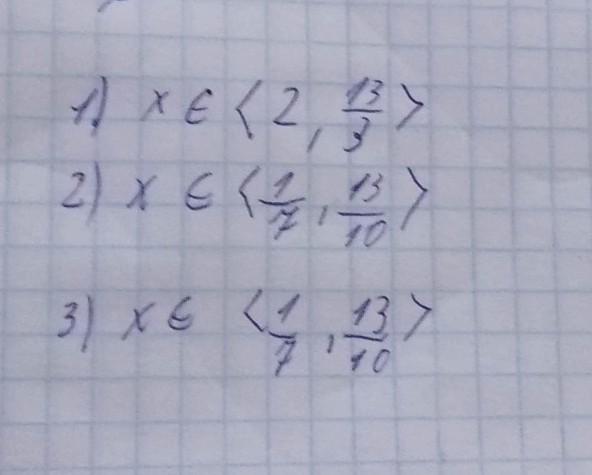 1) x ∈ ⟨2, 13/3⟩
2) x ∈ ⟨1/7, 13/10⟩
3) x ∈ ⟨1/7, 13/10⟩